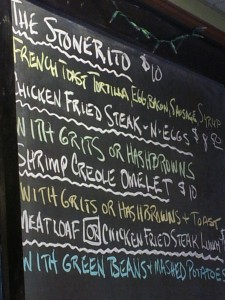 THE STONERITO $10
FRENCH TOAST TORTILLA EGG BACON SAUSAGE SYRUP
CHICKEN FRIED STEAK -N- EGGS $
WITH GRITS OR HASHBROWNS
SHRIMP CREOLE OMELET $10
WITH GRITS OR HASHBROWNS + TOAST
MEATLOAF OR CHICKEN FRIED STEAK LUNCH
WITH GREEN BEANS + MASHED POTATOES